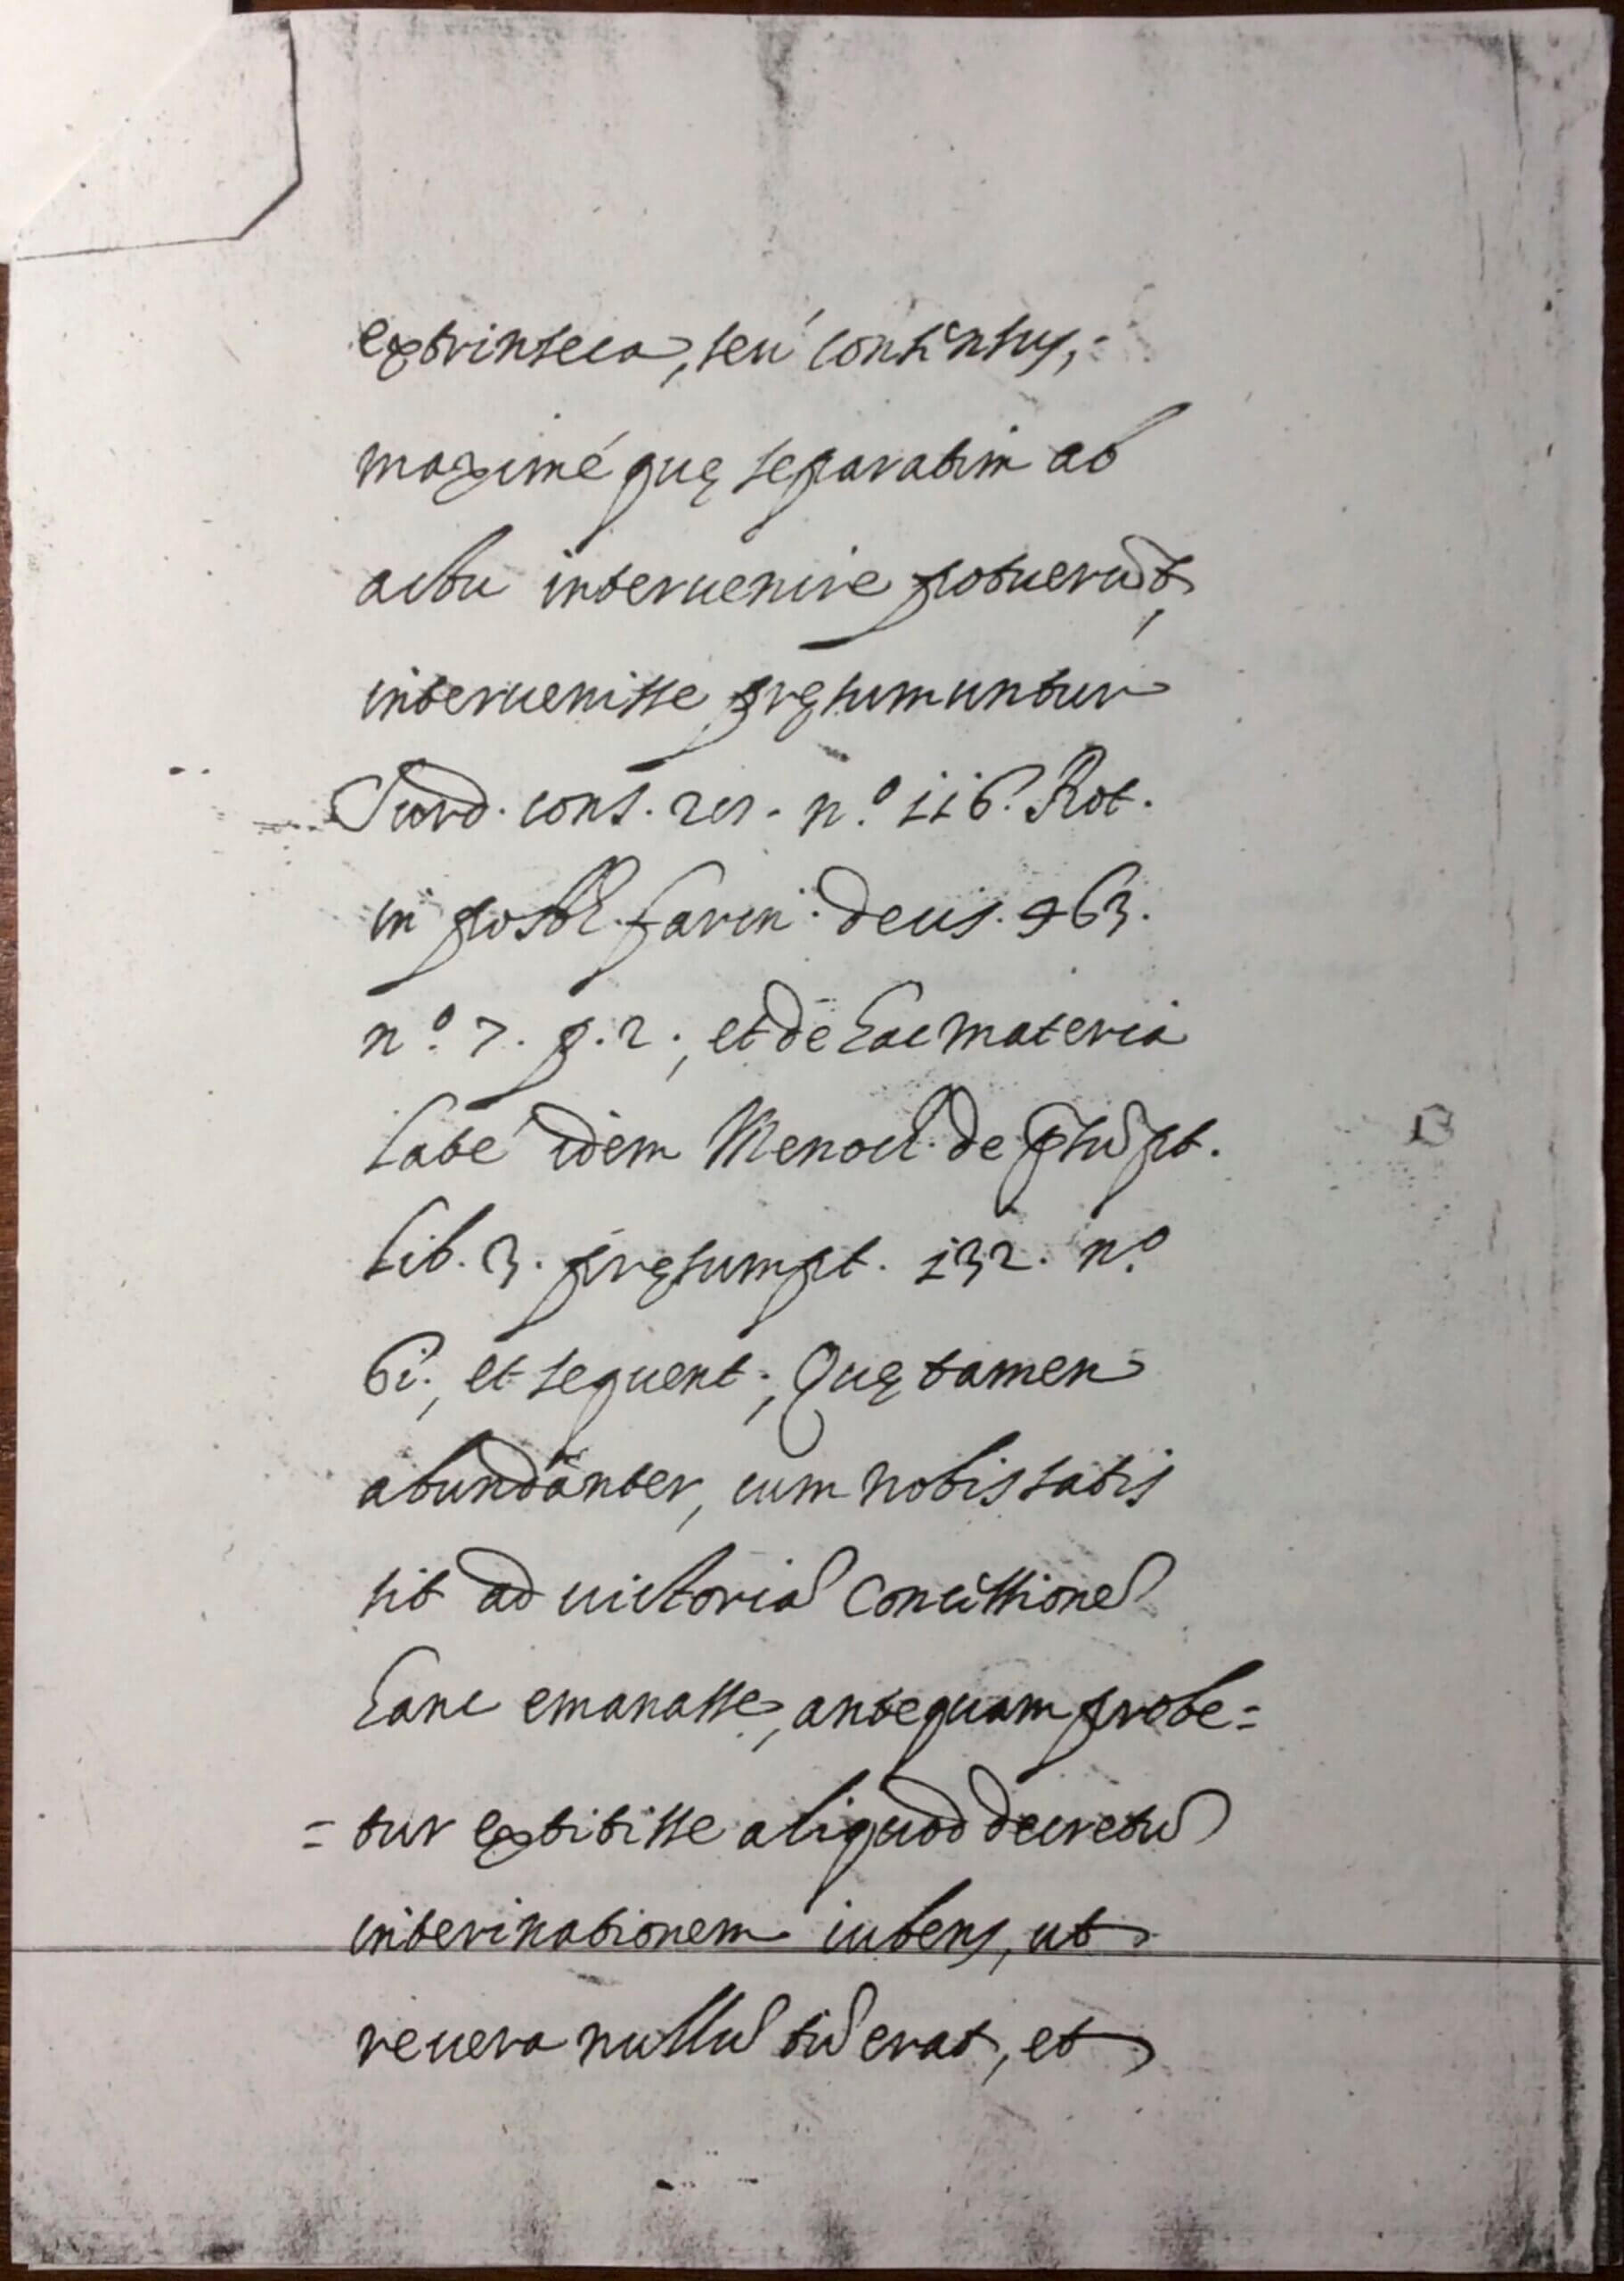 extrinseca, seu' consensus,
maximé quę separatim ab
actu interuenire potuerūt,
interuenisse pręsumuntur
Surd. cons. 201. n.º 116. Rot.
in posth. farin. decis. 963.
n.º 7. p. 2., et de hac materia
latè idem Menoch. de pręsūpt.
lib. 3. pręsumpt. 132. n.º
61., et sequent., Quę tamen
abundanter, cum nobis satis
sit ad uictoriā Concessionē
hanc emanasse, antequam probe=
=tur extitisse aliquod decretū
interinationem iubens, ut
reuera nullū tū erat, et